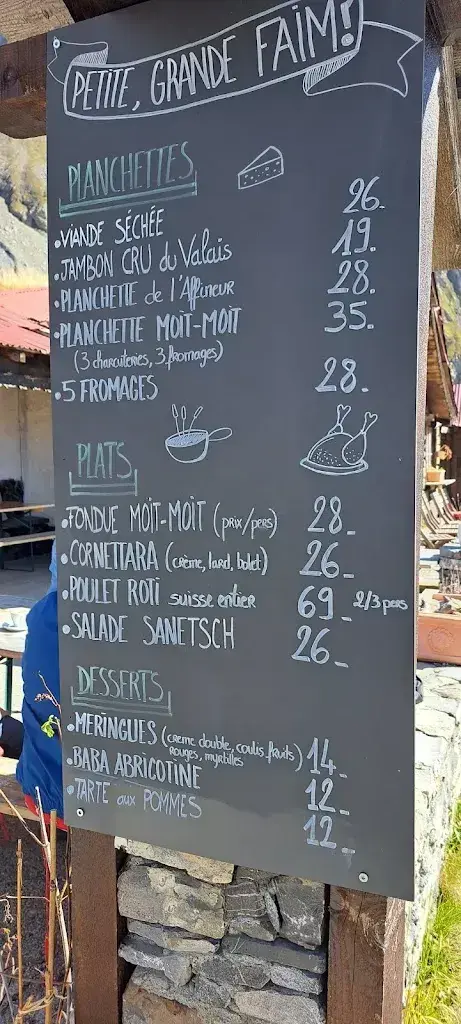 PETITE, GRANDE FAIM!
PLANCHETTES
•VIANDE SÉCHÉE 26.
•JAMBON CRU du Valais 19.
•PLANCHETTE de l'Affineur 28.
•PLANCHETTE MOIT-MOIT 35.
(3 charcuteries, 3 fromages)
•5 FROMAGES 28.-
PLATS
•FONDUE MOIT-MOIT (prix/pers) 28.-
•CORNETTARA (crème, lard, bolet) 26.-
•POULET ROTI suisse entier 69.- 2/3 pers
•SALADE SANETSCH 26.-
DESSERTS
•MERINGUES (creme double, coulis fruits 14.-
rouges, myrtilles)
•BABA ABRICOTINE 12.-
•TARTE aux POMMES 12.-